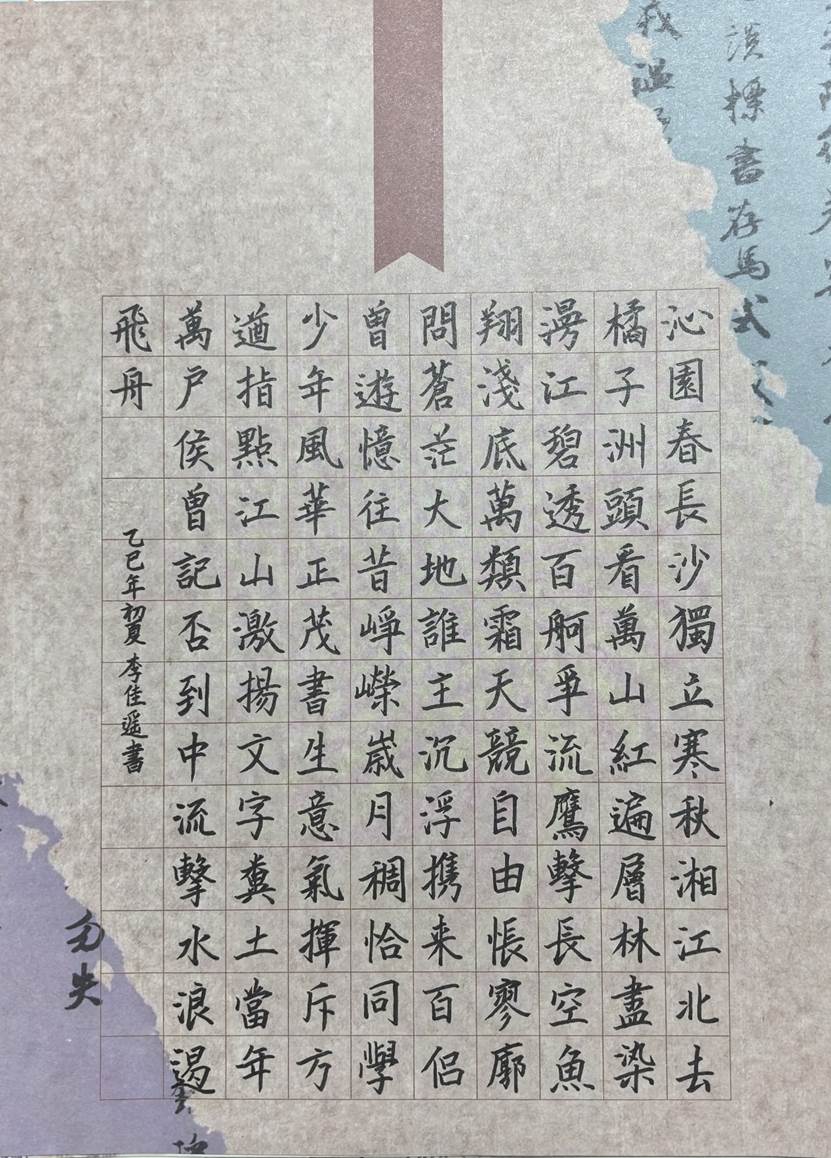 沁園春長沙獨立寒秋湘江北去
橘子洲頭看萬山紅遍層林盡染
漫江碧透百舸爭流鷹擊長空魚
翔淺底萬類霜天競自由悵寥廓
問蒼茫大地誰主沉浮携来百侣
曾遊憶往昔崢嶸崴月稠恰同學
少年風華正茂書生意氣揮斥方
遒指點江山激揚文字糞土當年
萬户侯曾記否到中流擊水浪遏
飛舟
乙巳年初夏李佳遥書
勿失